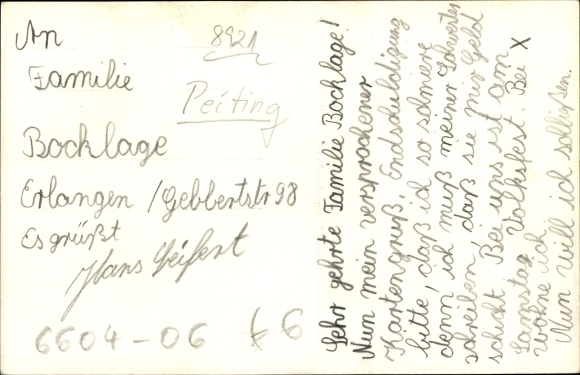 An
8921
Familie
Peiting
Bocklage
Erlangen / Gebbertstr 98
Es grüßt
Hans Seifert
6604-06 € 6
Sehr gehrte Familie Bocklage!
Nun mein versprochener
Kartengruß. Endschuldigung
bitte, daß ich so schmiere
denn, ich muß meiner Schwester
schreiben, daß sie mir Geld
schickt. Bei uns ist am
Samstag Volksfest. Bei X
wohne ich
Nun will ich schlißen.